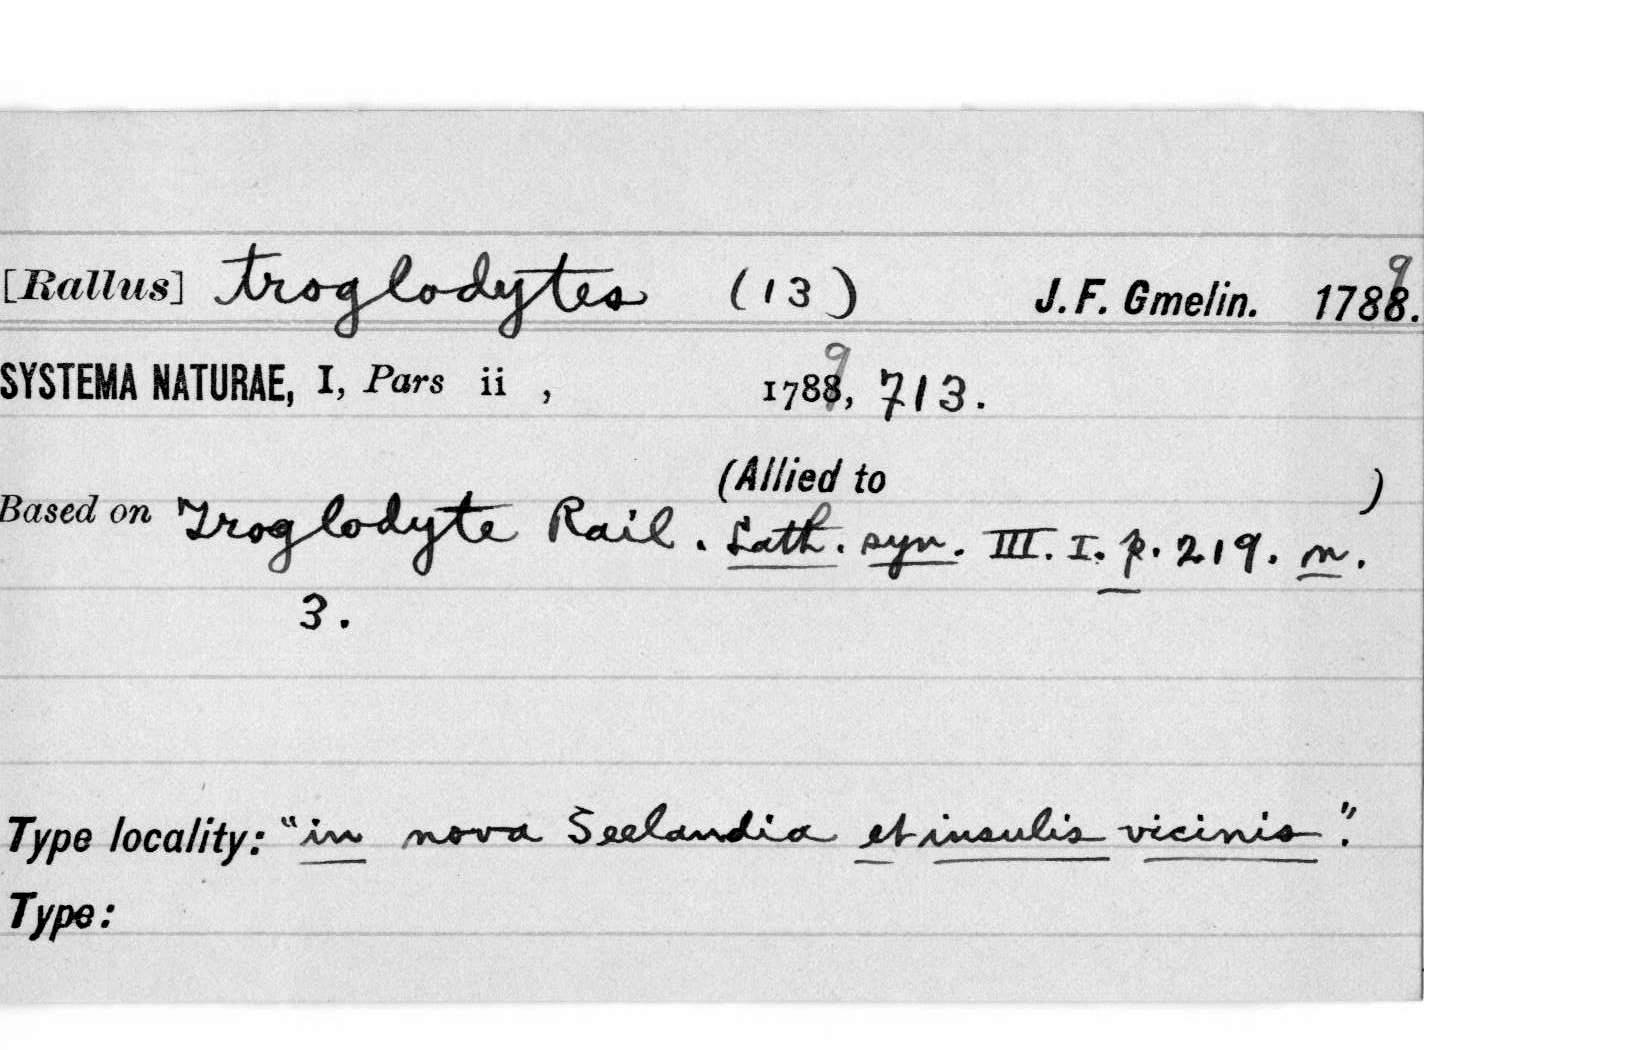 [Rallus] troglodytes (13) J. F. Gmelin. 1788. 9
SYSTEMA NATURAE, I, Pars ii , 1788, 9 713.
(Allied to )
Based on Troglodyte Rail. Lath. syn. III. I. p. 219. n.
3.
Type locality: "in nova Seelandia et insulis vicinis".
Type: